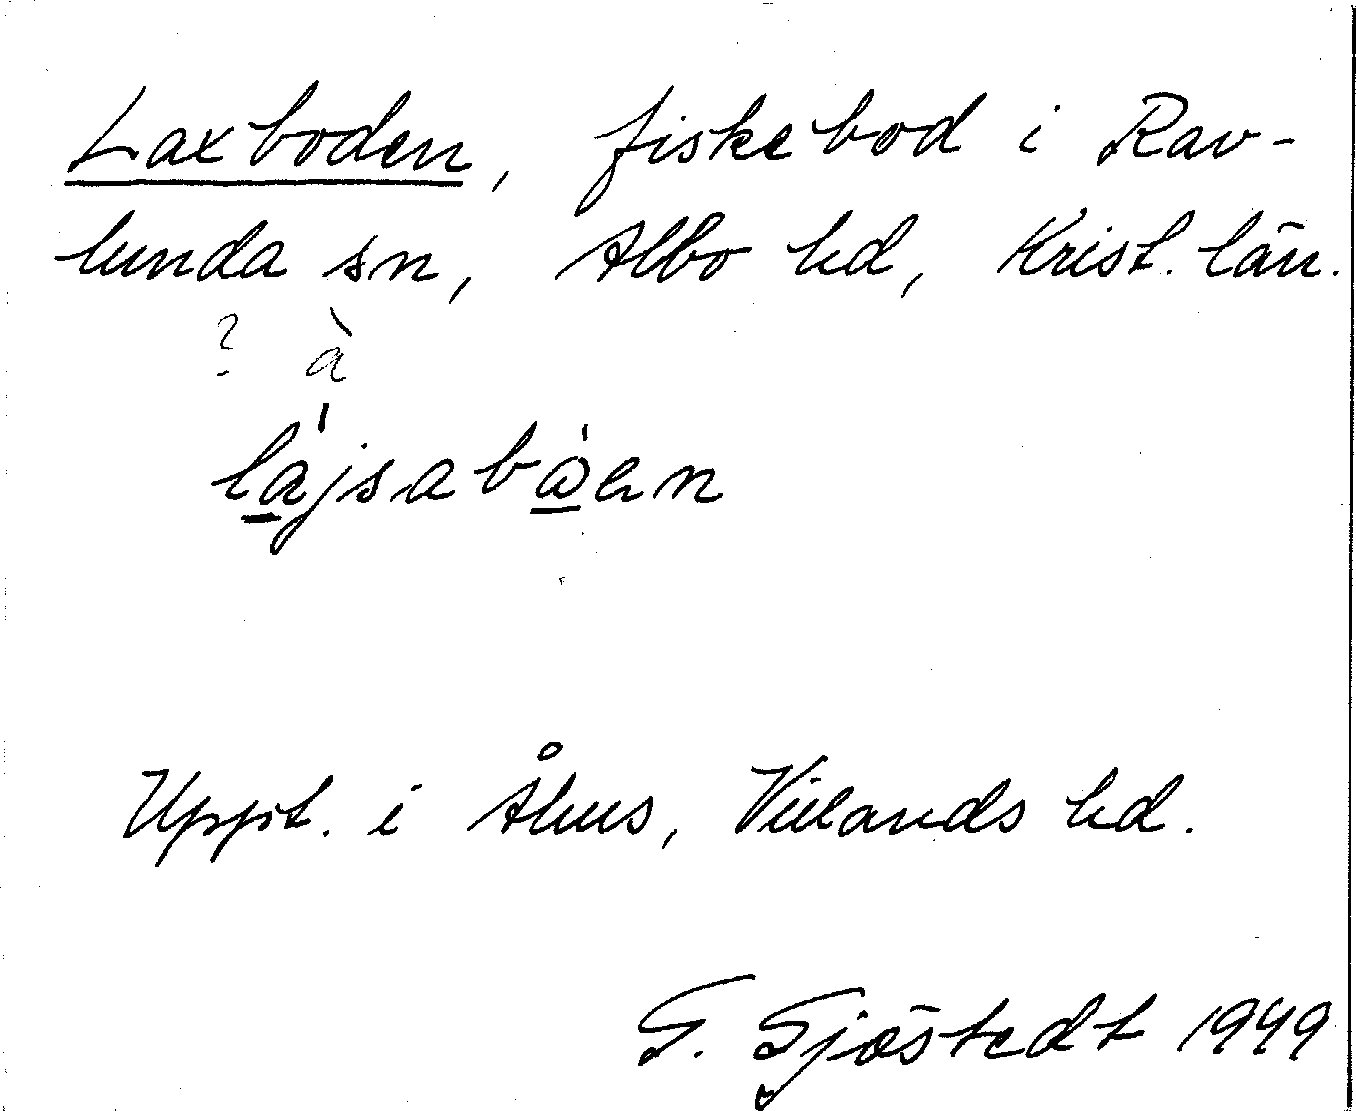 Laxboden, fiskebod i Rav-
lunda sn, Albo hd, Krist. län.
? à
la̱̍jsabo̱̍en
Uppt. i Åhus, Villands hd.
G. Sjöstedt 1949